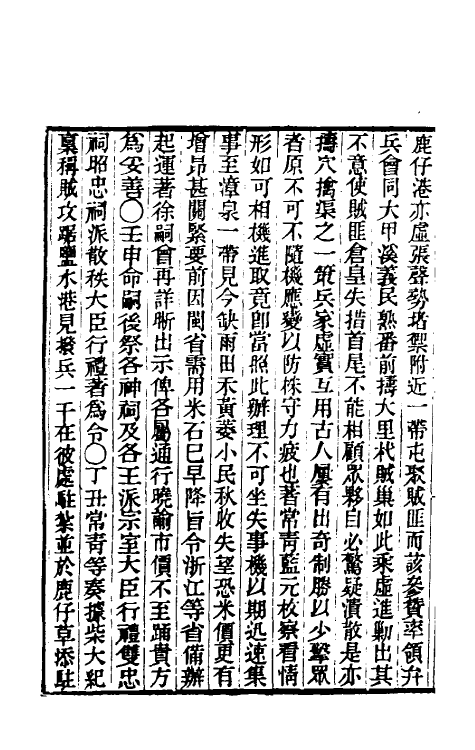 鹿仔港亦虛張聲勢搭寮附近一帶屯聚賊匪而該參贊率領弁
兵會同大甲溪義民熟番前擣大里杙賊巢如此乘虛進勦出其
不意使賊匪倉皇失措首尾不能相顧眾夥自必驚疑潰散是亦
擣穴擒渠之一策兵家虛實互用古人屢有出奇制勝以少擊眾
者原不可不隨機應變以防株守力疲也著常青藍元枚察看情
形如可相機進取竟卽當照此辦理不可坐失事機以期迅速集
事至漳泉一帶見今缺雨田禾黃萎小民秋收失望恐米價更有
增昂甚關緊要前因閩省需用米石已早降旨令浙江等省備辦
起運著徐嗣曾再詳晰出示俾各屬通行曉諭市價不至踊貴方
為妥善〇壬申命嗣後祭各神祠及各王派宗室大臣行禮雙忠
祠昭忠祠派散秩大臣行禮著為令〇丁丑常青等奏據柴大紀
稟稱賊攻踞鹽水港見撥兵一千在彼處駐紮並於鹿仔草添駐